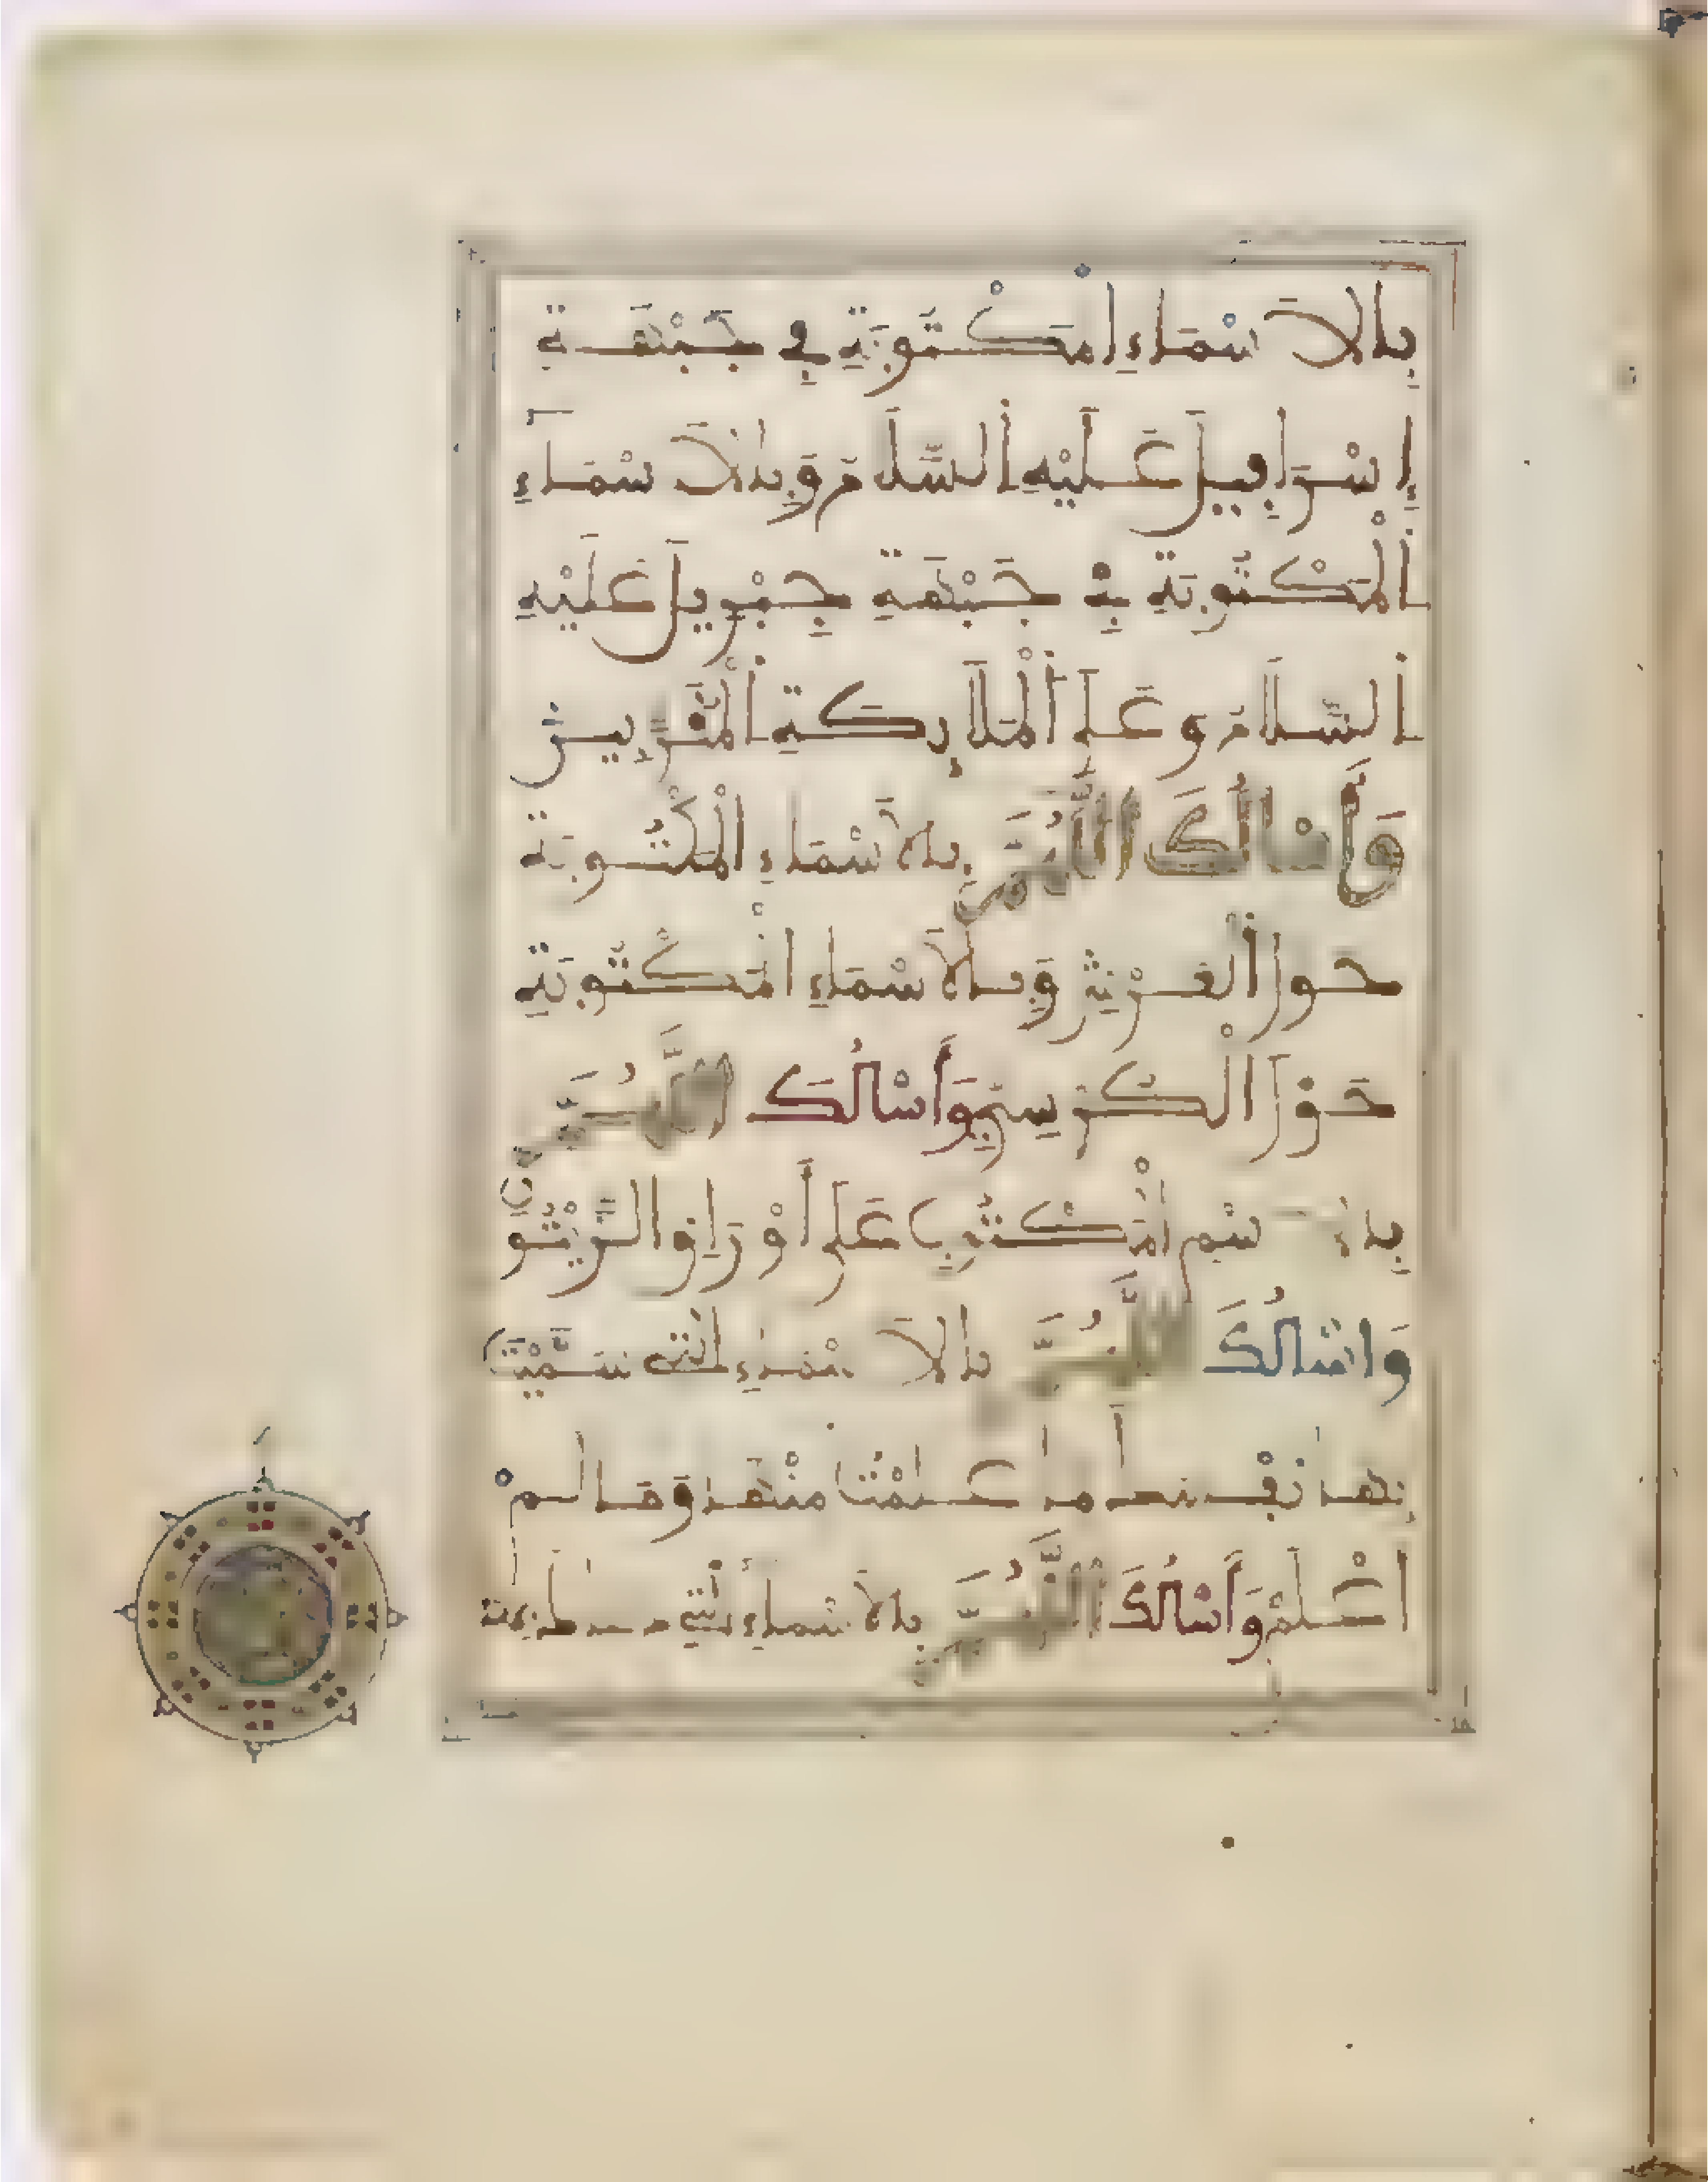 بِالاَسْمَاءِ الْمَكْتُوبَةِ فِي جَبْهَةِ
إِسْرَافِيلَ عَلَيْهِ السَّلَامُ وَبِالاَسْمَاءِ
الْمَكْتُوبَةِ فِي جَبْهَةِ جِبْرِيلَ عَلَيْهِ
السَّلَامُ وَعَلَى الْمَلَائِكَةِ الْمُقَرَّبِينَ
وَأَسْأَلُكَ اللَّهُمَّ بِالاَسْمَاءِ الْمَكْتُوبَةِ
حَوْلَ الْعَرْشِ وَبِالاَسْمَاءِ الْمَكْتُوبَةِ
حَوْلَ الْكُرْسِيِّ وَأَسْأَلُكَ اللَّهُمَّ
بِالاسْمِ الْمَكْتُوبِ عَلَى أَوْرَاقِ الزَّيْتُونِ
وَأَسْأَلُكَ اللَّهُمَّ بِالاَسْمَاءِ الَّتِي سَمَّيْتَ
بِهَا نَفْسَكَ مَا عَلِمْتُ مِنْهَا وَمَا لَمْ
أَعْلَمْ وَأَسْأَلُكَ اللَّهُمَّ بِالاَسْمَاءِ الَّتِي